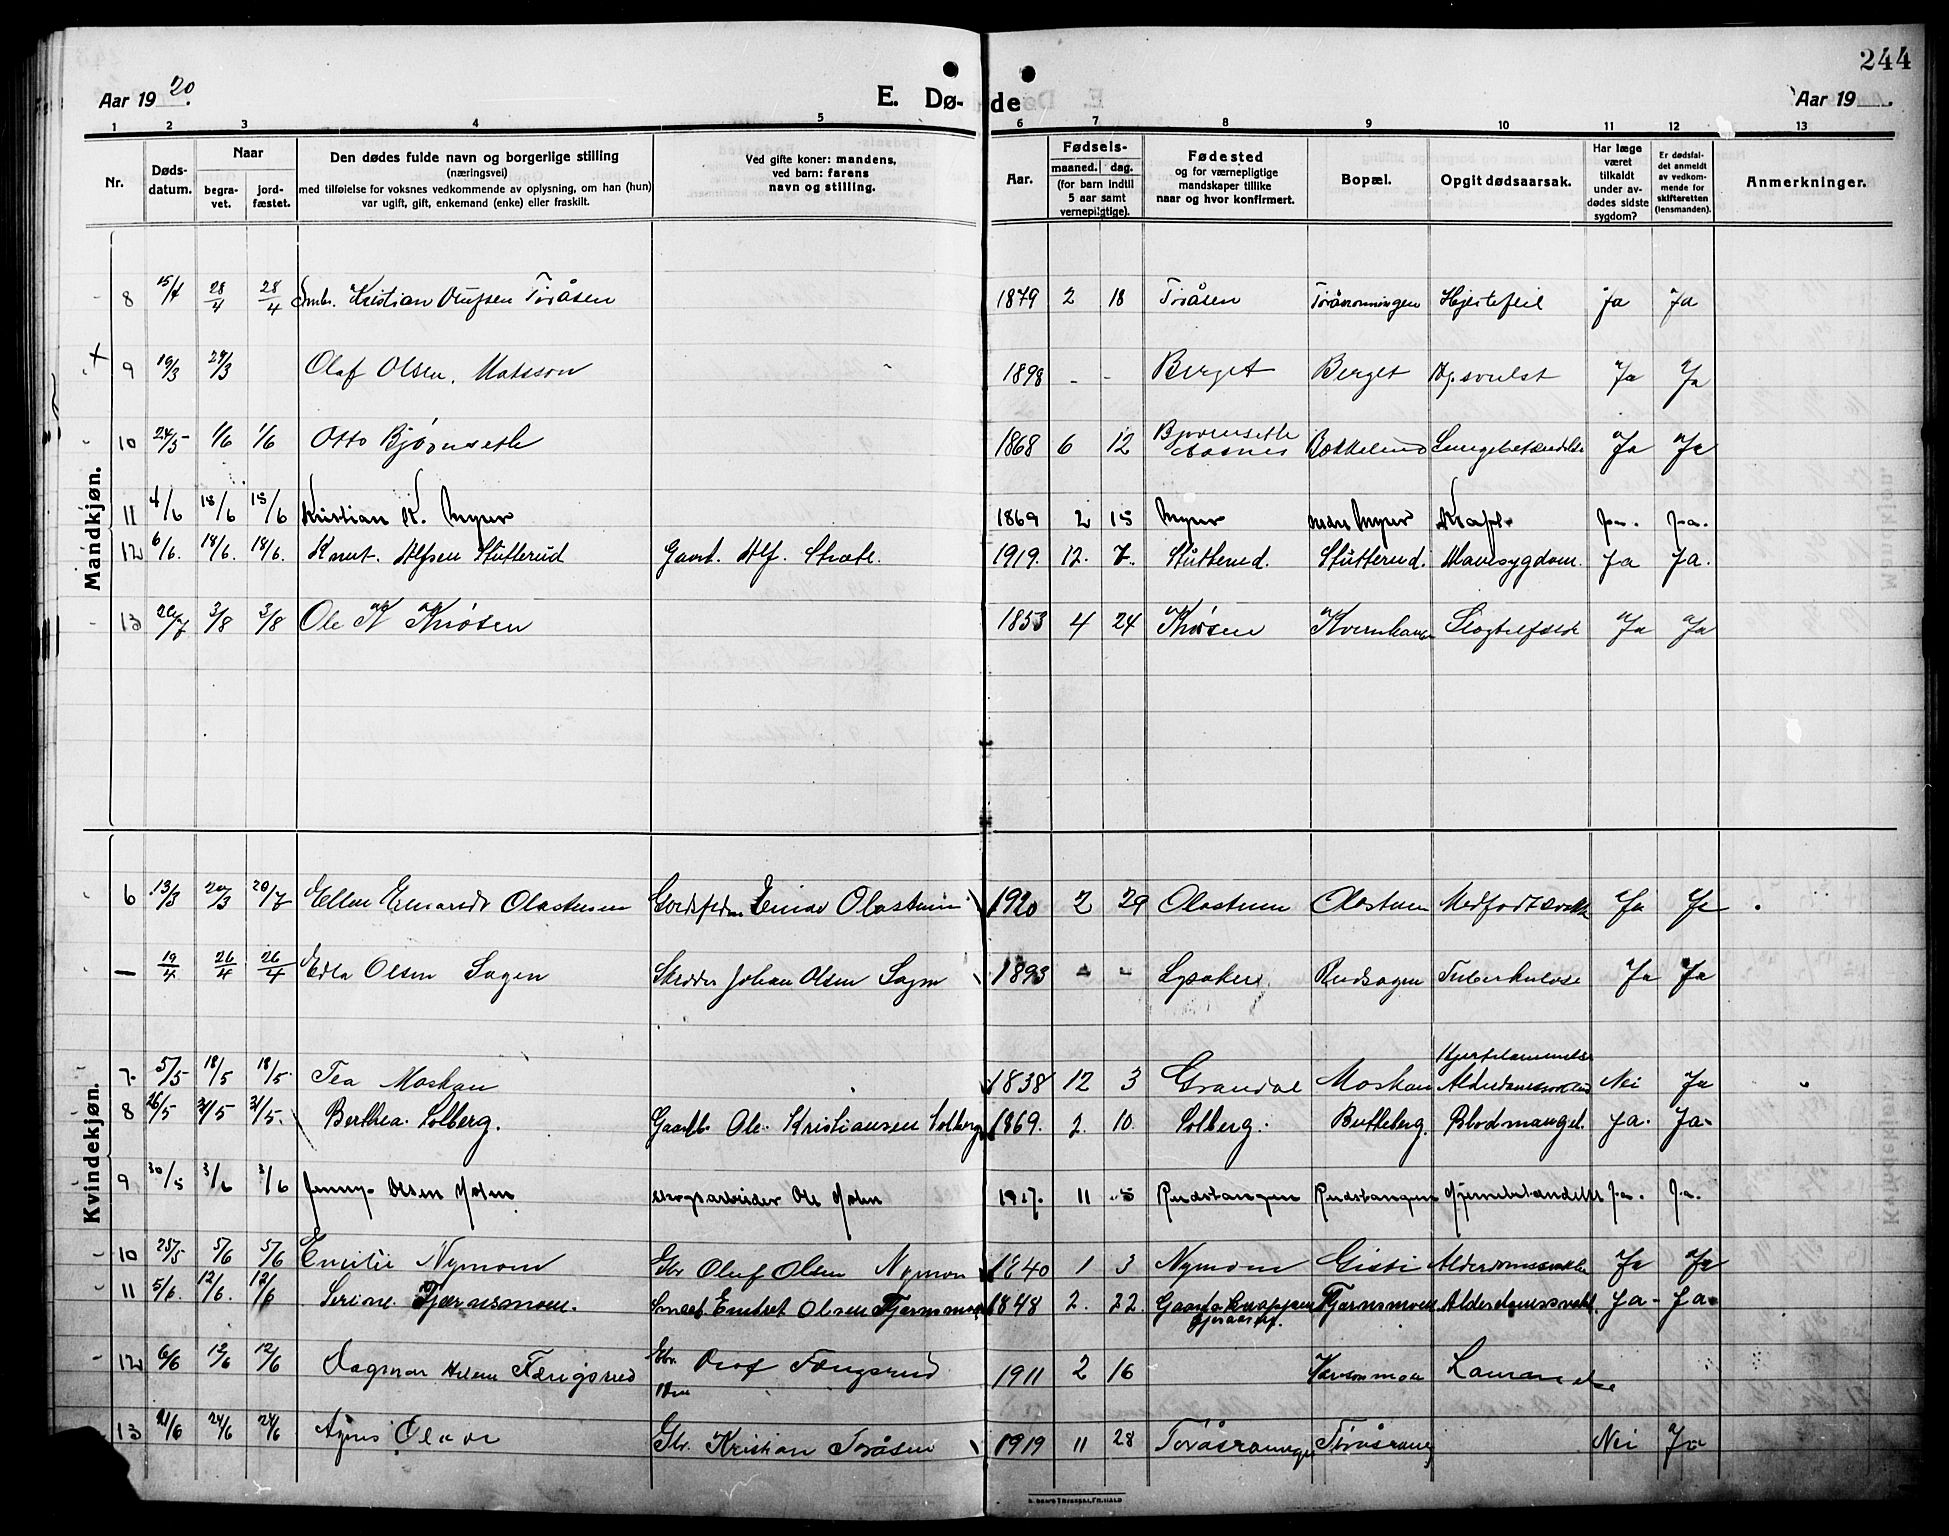 244
Aar 1920.
E. Dø- de
Aar 19
1 2 3 4 5 6 7 8 9 10 11 12 13
Nr.
Døds-
datum.
Naar
begra-
vet.
jord-
fæstet.
Den dødes fulde navn og borgerlige stilling
(næringsvei)
med tilføielse for voksnes vedkommende av oplysning, om han (hun)
var ugift, gift, enkemand (enke) eller fraskilt.
Ved gifte koner: mandens,
ved barn: farens
navn og stilling.
Aar.
Fødsels-
maaned. dag.
(for barn indtil
5 aar samt
vernepligtige).
Fødested
og for værnepligtige
mandskaper tillike
naar og hvor konfirmert.
Bopæl.
Opgit dødsaarsak.
Har læge
været
tilkaldt
under av-
dødes sidste
sygdom?
Er dødsfal-
det anmeldt
av vedkom-
mende for
skifteretten
(lensmanden).
Anmerkninger.
Mandkjøn.
8 15/4 28/4 28/4 Smbr. Kristian Olufsen Toråsen 1879 2 18 Toråsen Hjertefeil Ja Ja
+ 9 19/3 29/3 Olaf Olsen Matsson 1898 - - Berget Berget svulst Ja Ja
10 24/5 1/6 1/6 Otto Bjørnseth 1868 6 12 Bjørnseth Aasnes Lungebetændelse Ja Ja
11 4/6 18/6 18/6 Kristian K. Myrer 1869 2 15 Myrer nedre Myrer Ja. Ja.
12 6/6. 18/6. 18/6. Knut. Alfsen Stutterud Gaardbr. Alf. 1919. 12. 7. Stutterud. Stutterud. Mavesygdom. Ja Ja.
13 26/7 3/8 3/8 Ole K Knøsen 1853 4 24 Knøsen Slagtilfælde Ja Ja
Kvindekjøn.
6 13/3 20/3 20/7 Ellen Einarsdt Olastuen Einar Olastuen 1920 2 29 Olastuen Olastuen Medfødt svakh. Ja Ja
— 19/4 26/4 26/4 Edla Olsen Sagen Skrædder Johan Olsen Sagen 1893 - - Lysaker Rudsagen Tuberkulose Ja Ja
7. 5/5 18/5 18/5. Tea Moskau 1838 12 3 Grandal Moskau Hjertelammelse
Alderdomssvakhed Nei Ja
8 26/5 31/5 31/5. Berthea Solberg. Gaardbr. Ole Kristiansen Solberg 1869. 2. 10. Solberg. Butteberg. Blodmangel. Ja. Ja.
9 30/5 3/6 3/6 Jenny Olsen Holen Skogsarbeider Ole Holen 1917. 11 5 Rudstangen Rudstangen Hjernebetændelse Ja. Ja.
10 25/5 5/6 5/6 Emilie Nymoen Gbr Oluf Olsen Nymoen 1840 1 3 Nymoen Gisti Alderdomssvakhet Ja Ja
11 5/6. 12/6. 12/6 Serine Tjernsmoen. Olsen Tjernsmoen 1848 2. 22. Tjernsmoen Alderdomssvakh. Ja - Ja.
12 6/6 12/6 12/6 Dagmar Helene Fængsrud Gbr. Olof Fængsrud 1911 2 16
13 21/6 24/6 24/6 Agnes Gbr. Kristian Toråsen 1919 11 28 Nei Ja